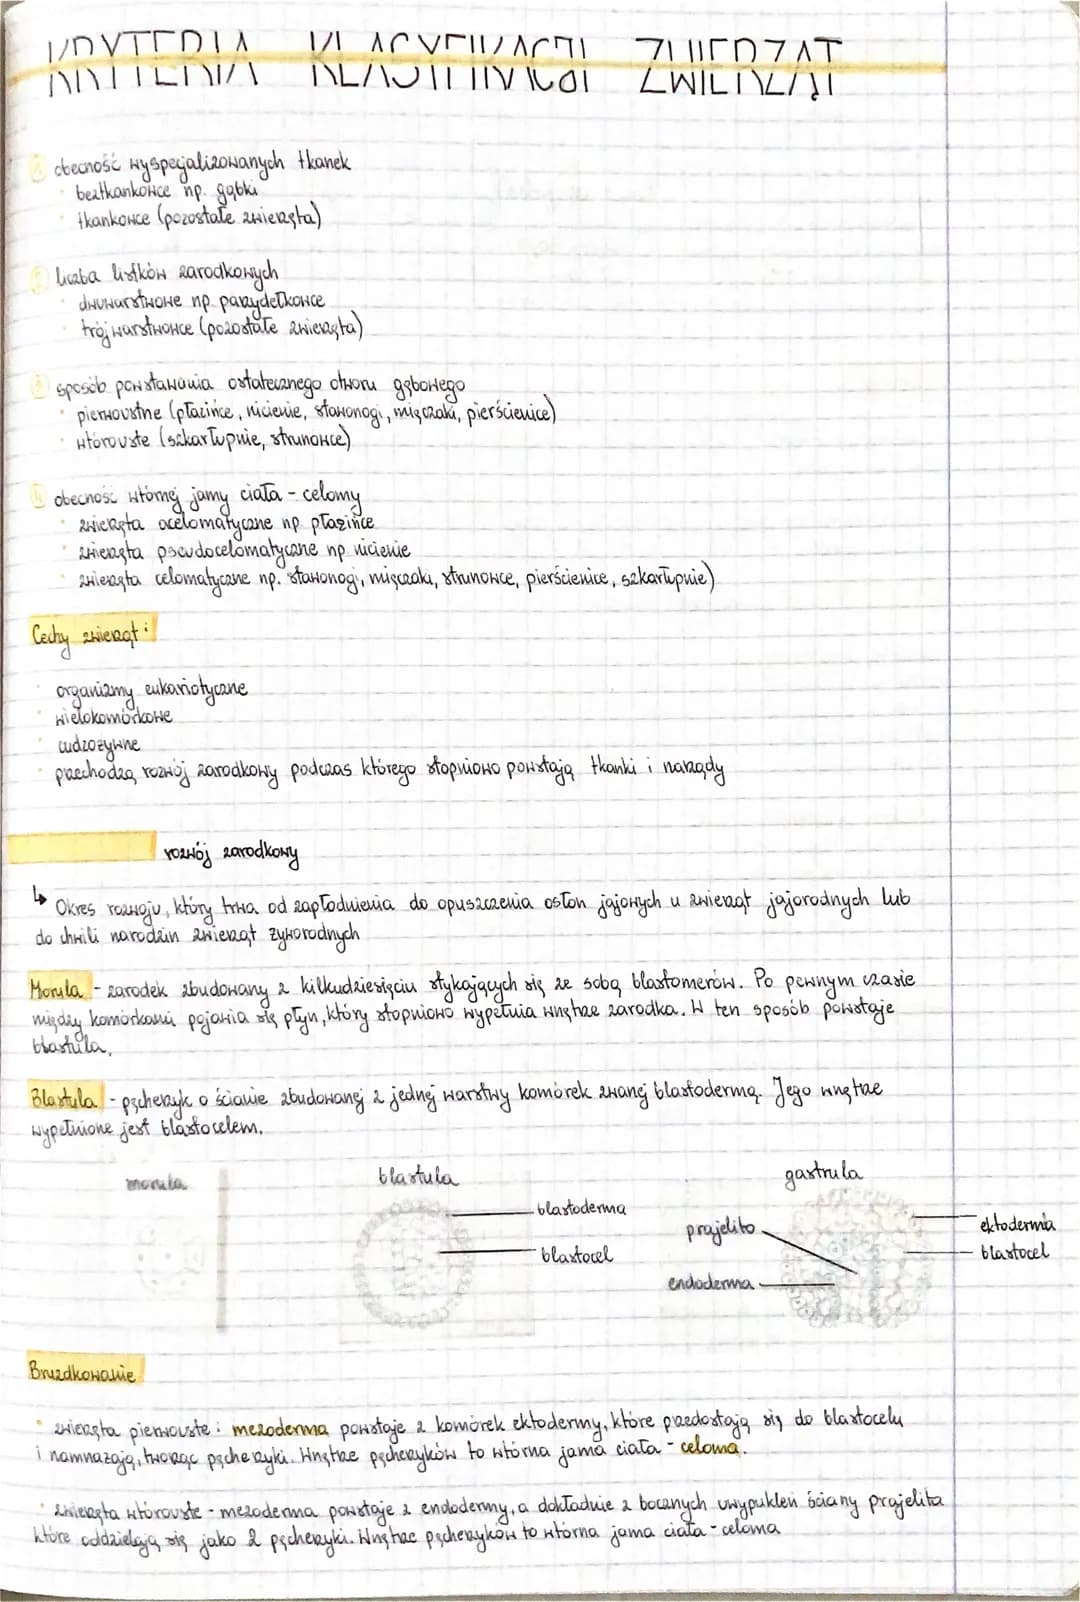 KRYTERIA KLASYFIKACJI ZWIERZĄT
1 obecność wyspecjalizowanych tkanek
• beztkankowce np. gąbki
• tkankowce (pozostałe zwierzęta)
2 liczba listków zarodkowych
• dwuwarstwowe np. parzydełkowce
• trójwarstwowce (pozostałe zwierzęta)
3 sposób powstawania ostatecznego otworu gębowego
• pierwouste (płazińce, nicienie, stawonogi, mięczaki, pierścienice)
• wtórouste (szkarłupnie, strunowce)
4 obecność wtórnej jamy ciała - celomy
• zwierzęta acelomatyczne np. płazińce
• zwierzęta pseudocelomatyczne np. nicienie
• zwierzęta celomatyczne np. stawonogi, mięczaki, strunowce, pierścienice, szkarłupnie)
Cechy zwierząt:
• organizmy eukariotyczne
• wielokomórkowe
• cudzożywne
• przechodzą rozwój zarodkowy podczas którego stopniowo powstają tkanki i narządy
rozwój zarodkowy
↳ Okres rozwoju, który trwa od zapłodnienia do opuszczenia osłon jajowych u zwierząt jajorodnych lub
do chwili narodzin zwierząt żyworodnych
Morula - zarodek zbudowany z kilkudziesięciu stykających się ze sobą blastomerów. Po pewnym czasie
między komórkami pojawia się płyn, który stopniowo wypełnia wnętrze zarodka. W ten sposób powstaje
blastula.
Blastula - pęcherzyk o ścianie zbudowanej z jednej warstwy komórek zwanej blastodermą. Jego wnętrze
wypełnione jest blastocelem.
morula
blastula
blastoderma
blastocel
gastrula
prajelito
endoderma
ektoderma
blastocel
Bruzdkowanie
• zwierzęta pierwouste: mezoderma powstaje z komórek ektodermy, które przedostają się do blastocelu
i namnażają, tworząc pęcherzyki. Wnętrze pęcherzyków to wtórna jama ciała - celoma.
• zwierzęta wtórouste - mezoderma powstaje z endodermy, a dokładnie z bocznych uwypukleń ściany prajelita
które oddzielają się jako 2 pęcherzyki. Wnętrze pęcherzyków to wtórna jama ciała - celoma